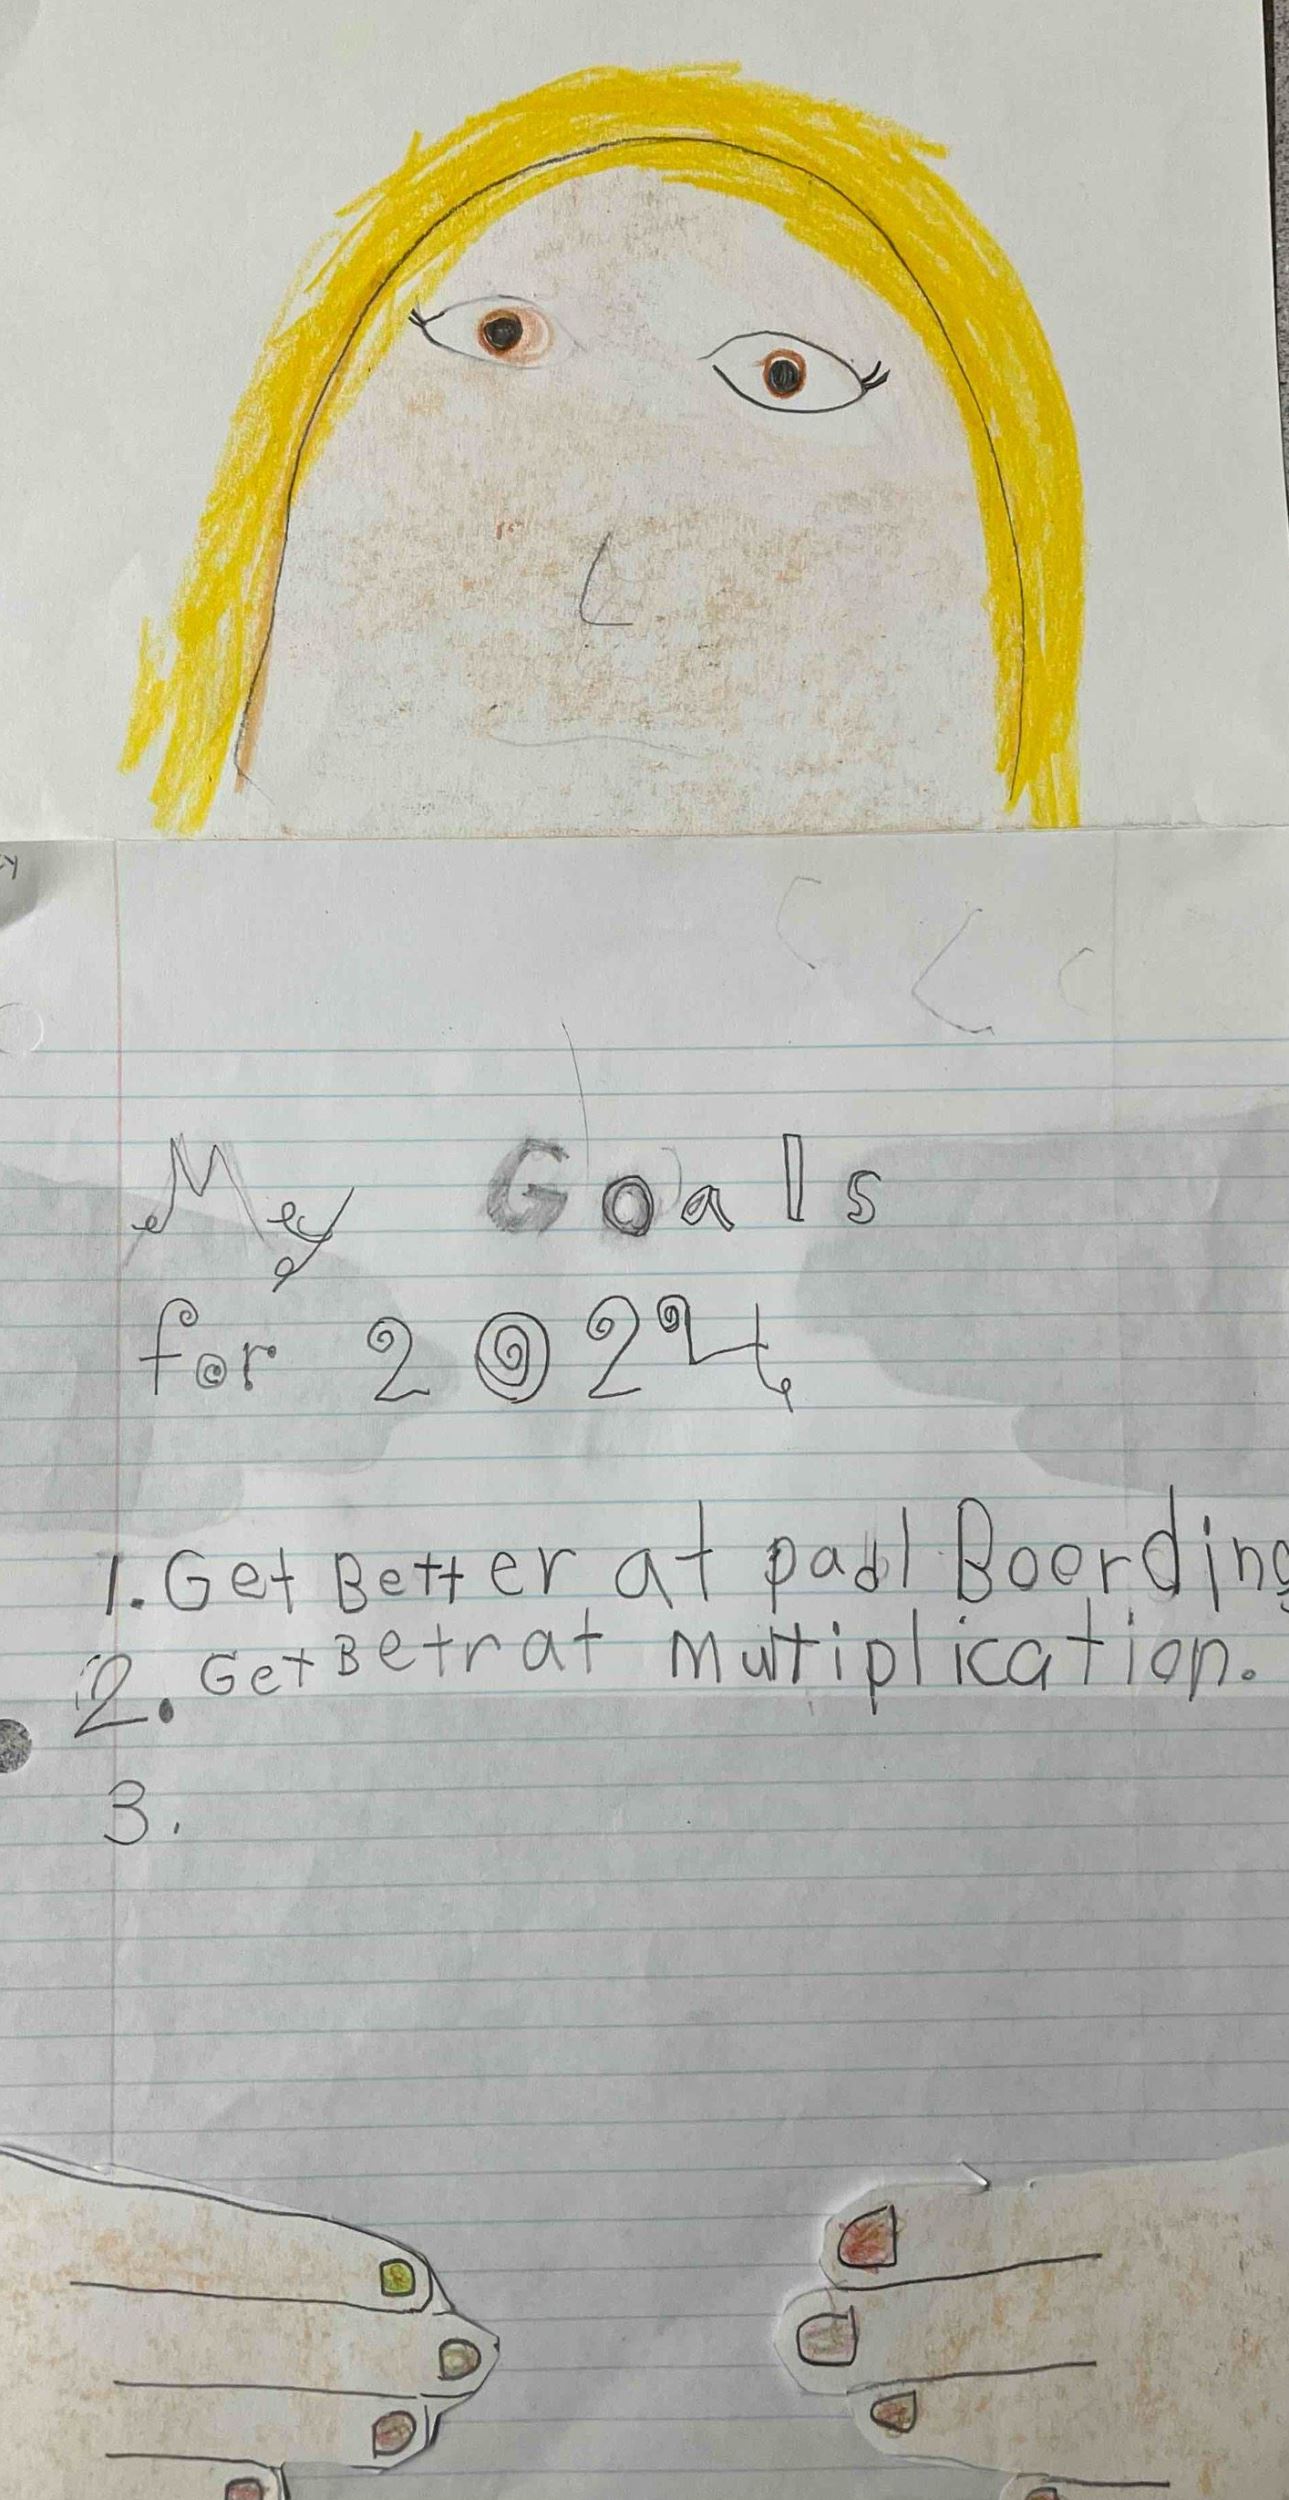 My Goals
for 2024
1. Get Better at padl Boording
2. Get Betr at Multiplication.
3.